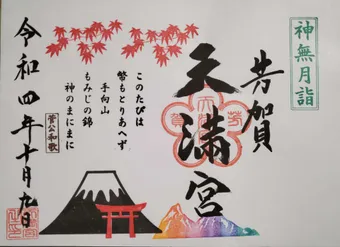 神無月詣
芳賀
天満宮
このたびは
幣もとりあへず
手向山
もみじの錦
神のまにまに
菅公和歌
令和四年十月九日